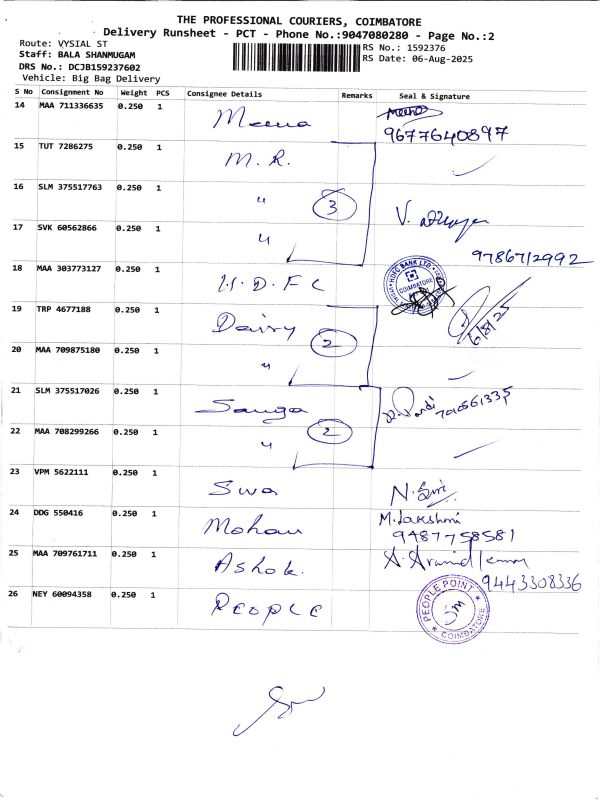 THE PROFESSIONAL COURIERS, COIMBATORE
Delivery Runsheet - PCT - Phone No.:9047080280 - Page No.:2
Route: VYSIAL ST
RS No.: 1592376
Staff: BALA SHANMUGAM
RS Date: 06-Aug-2025
DRS No.: DCJB159237602
Vehicle: Big Bag Delivery
S No Consignment No Weight PCS Consignee Details Remarks Seal & Signature
14 MAA 711336635 0.250 1 Meena Meena
9677640897
15 TUT 7286275 0.250 1 M.R.
16 SLM 375517763 0.250 1 " 3
17 SVK 60562866 0.250 1 " V.
9786712992
18 MAA 303773127 0.250 1 H.D.F.C HDFC BANK LTD COIMBATORE
19 TRP 4677188 0.250 1 Dairy 6/8/25
20 MAA 709875180 0.250 1 " 2
21 SLM 375517026 0.250 1 Sanga
22 MAA 708299266 0.250 1 " 2
23 VPM 5622111 0.250 1 Swa N.
24 DDG 550416 0.250 1 Mohan M.Lakshmi
9487758581
25 MAA 709761711 0.250 1 Ashok. A. Arvind Kumar
9443308336
26 NEY 60094358 0.250 1 PEOPLE PEOPLE POINT COIMBATORE